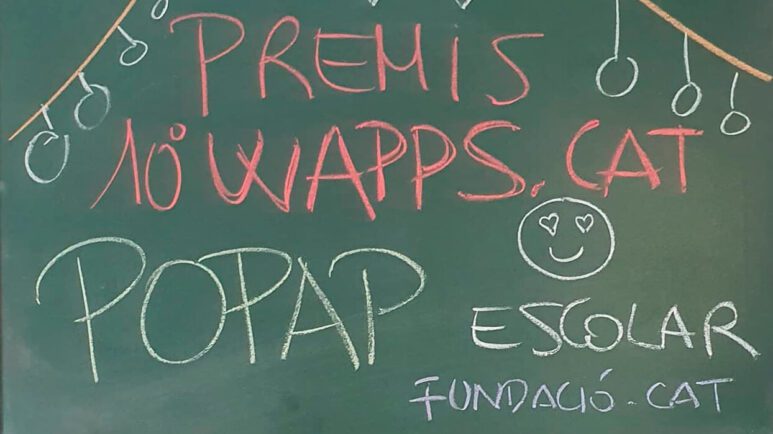 PREMIS
10º WAPPS.CAT
POPAP
ESCOLAR
FUNDACIÓ.CAT